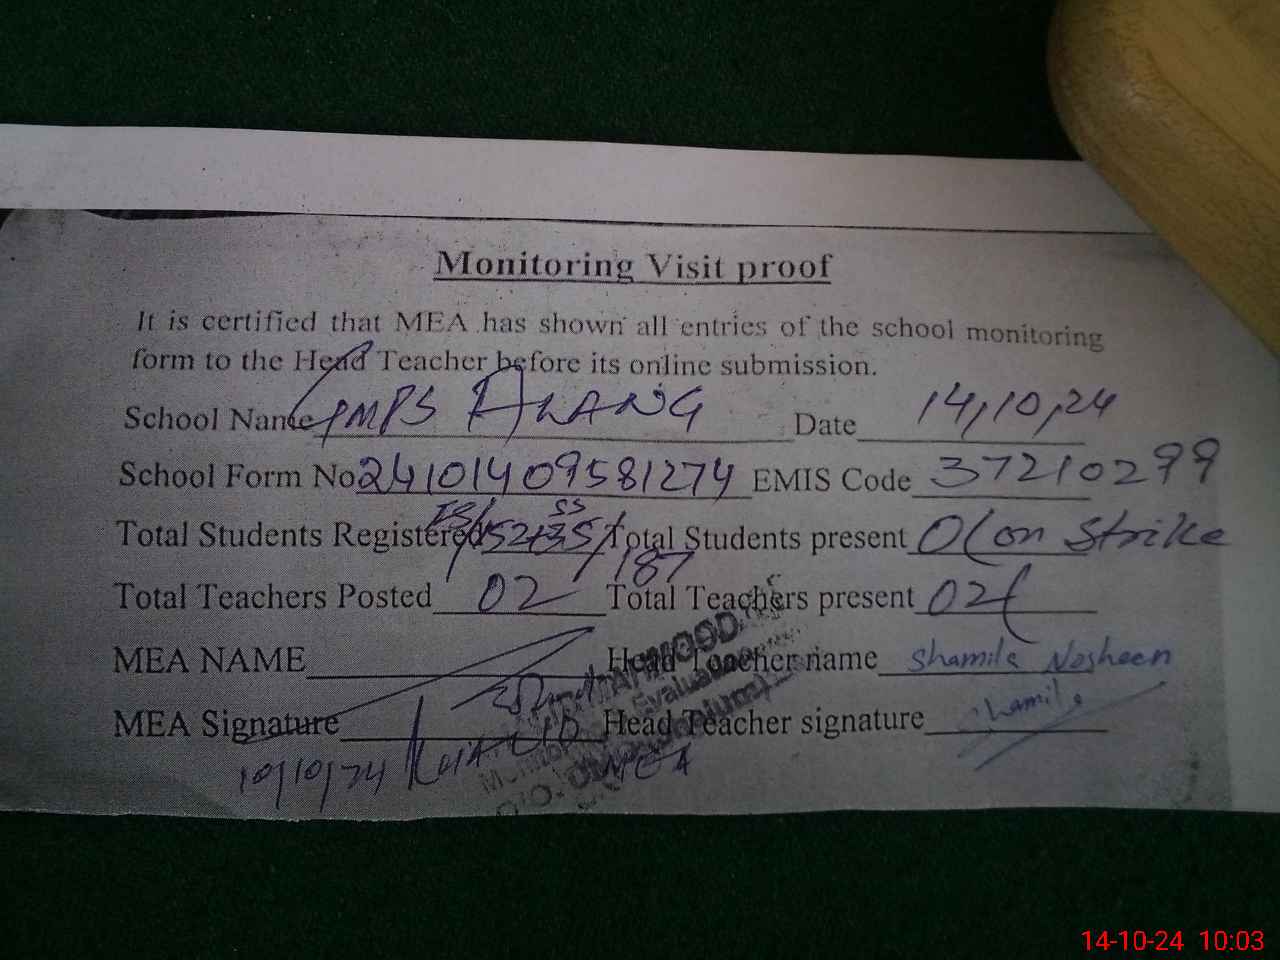 Monitoring Visit proof
It is certified that MEA has shown all entries of the school monitoring
form to the Head Teacher before its online submission.
School Name GMPS AHANG Date 14,10,24
School Form No 24101409581274 EMIS Code 37210299
SS
Total Students Registered 152+35/ Total Students present 0(on Strike
187
Total Teachers Posted 02 Total Teachers present 02
MEA NAME Head Teacher name Shamila Nosheen
MEA Signature KHALID Head Teacher signature Shamila
10/10/24 MEA
14-10-24 10:03